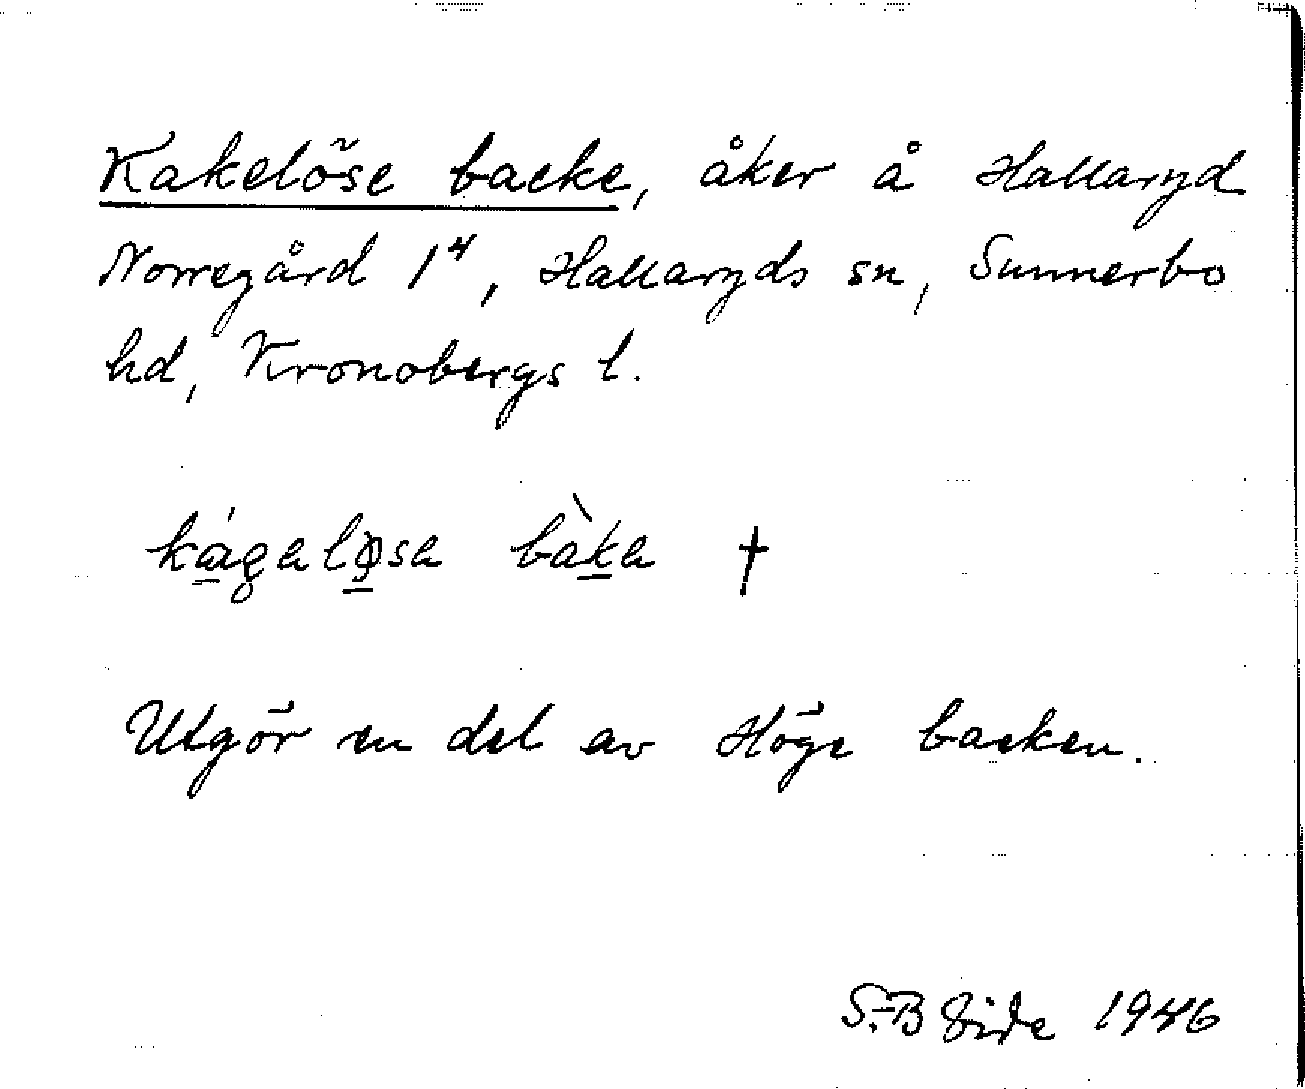 Kakelöse backe, åker å Hallaryd
Norregård 1⁴, Hallaryds sn, Sunnerbo
hd, Kronobergs l.
kágaløsa bàka †
Utgör en del av Höge backen.
S.-B 1946